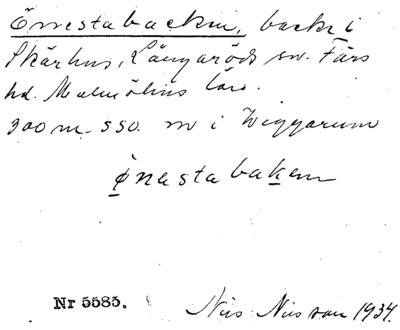 Önestabacken, backe i
Skärhus, Långaröds sn. Färs
hd. Malmöhus län.
300 m. SSO. nr i Wiggarum
önastabaken
Nr 5585.
Nils Nilsson 1934.